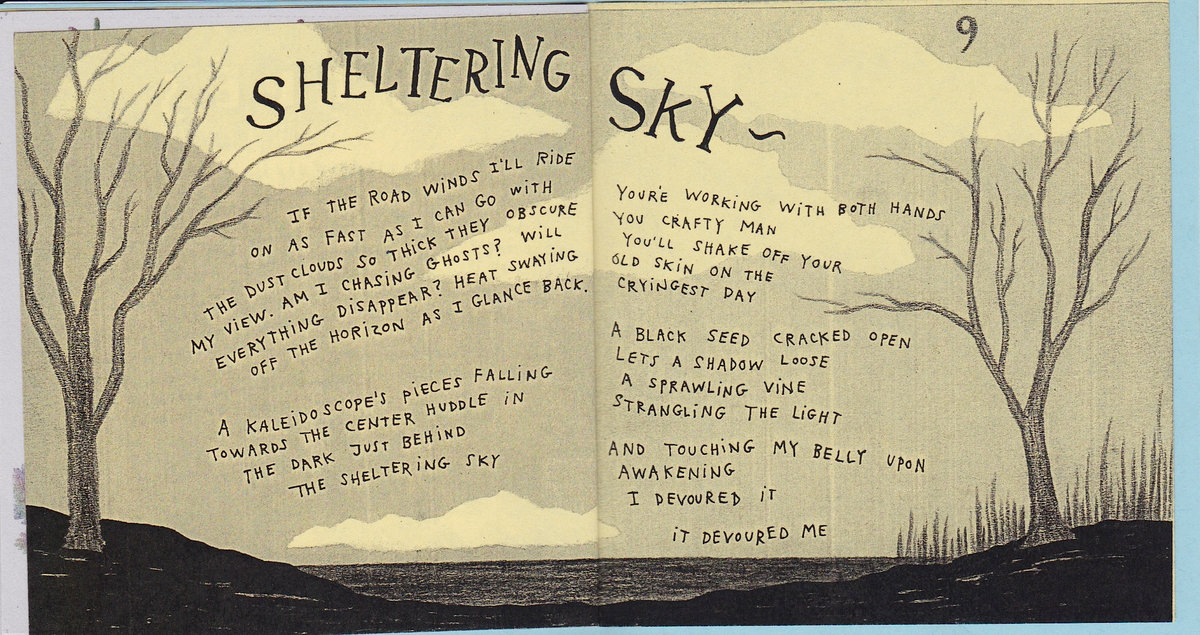 9
SHELTERING SKY~
IF THE ROAD WINDS I'LL RIDE
ON AS FAST AS I CAN GO WITH
THE DUST CLOUDS SO THICK THEY OBSCURE
MY VIEW. AM I CHASING GHOSTS? WILL
EVERYTHING DISAPPEAR? HEAT SWAYING
OFF THE HORIZON AS I GLANCE BACK.
A KALEIDOSCOPE'S PIECES FALLING
TOWARDS THE CENTER HUDDLE IN
THE DARK JUST BEHIND
THE SHELTERING SKY
YOUR'E WORKING WITH BOTH HANDS
YOU CRAFTY MAN
YOU'LL SHAKE OFF YOUR
OLD SKIN ON THE
CRYINGEST DAY
A BLACK SEED CRACKED OPEN
LETS A SHADOW LOOSE
A SPRAWLING VINE
STRANGLING THE LIGHT
AND TOUCHING MY BELLY UPON
AWAKENING
I DEVOURED IT
IT DEVOURED ME